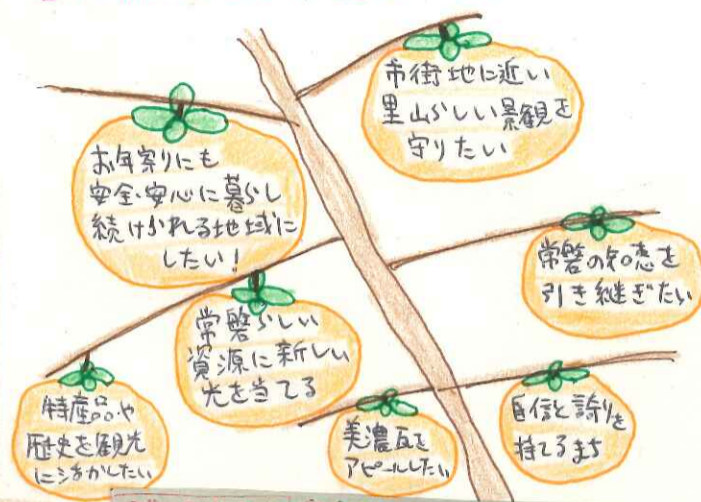 市街地に近い
里山らしい景観を
守りたい
お年寄りにも
安全・安心に暮らし
続けられる地域に
したい!
常磐の知恵を
引き継ぎたい
常磐らしい
資源に新しい
光を当てる
特産品や
歴史を観光
に活かしたい
美濃瓦を
アピールしたい
自信と誇りを
持てるまち